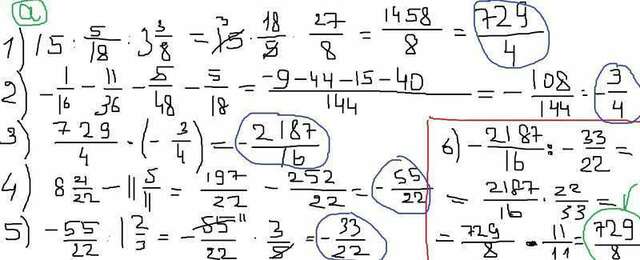 a
1) 15 : 5/18 · 3 3/8 = 15 3 · 18/5 · 27/8 = 1458/8 = 729/4
2) - 1/16 - 11/36 - 5/48 - 5/18 = -9-44-15-40/144 = - 108/144 = - 3/4
3) 729/4 · (- 3/4) = - 2187/16
4) 8 21/22 - 11 5/11 = 197/22 - 252/22 = - 55/22
5) - 55/22 : 1 2/3 = - 55 11/22 · 3/5 = - 33/22
6) - 2187/16 : - 33/22 =
= 2187/16 · 22/33 =
= 729/8 · 11/11 = 729/8